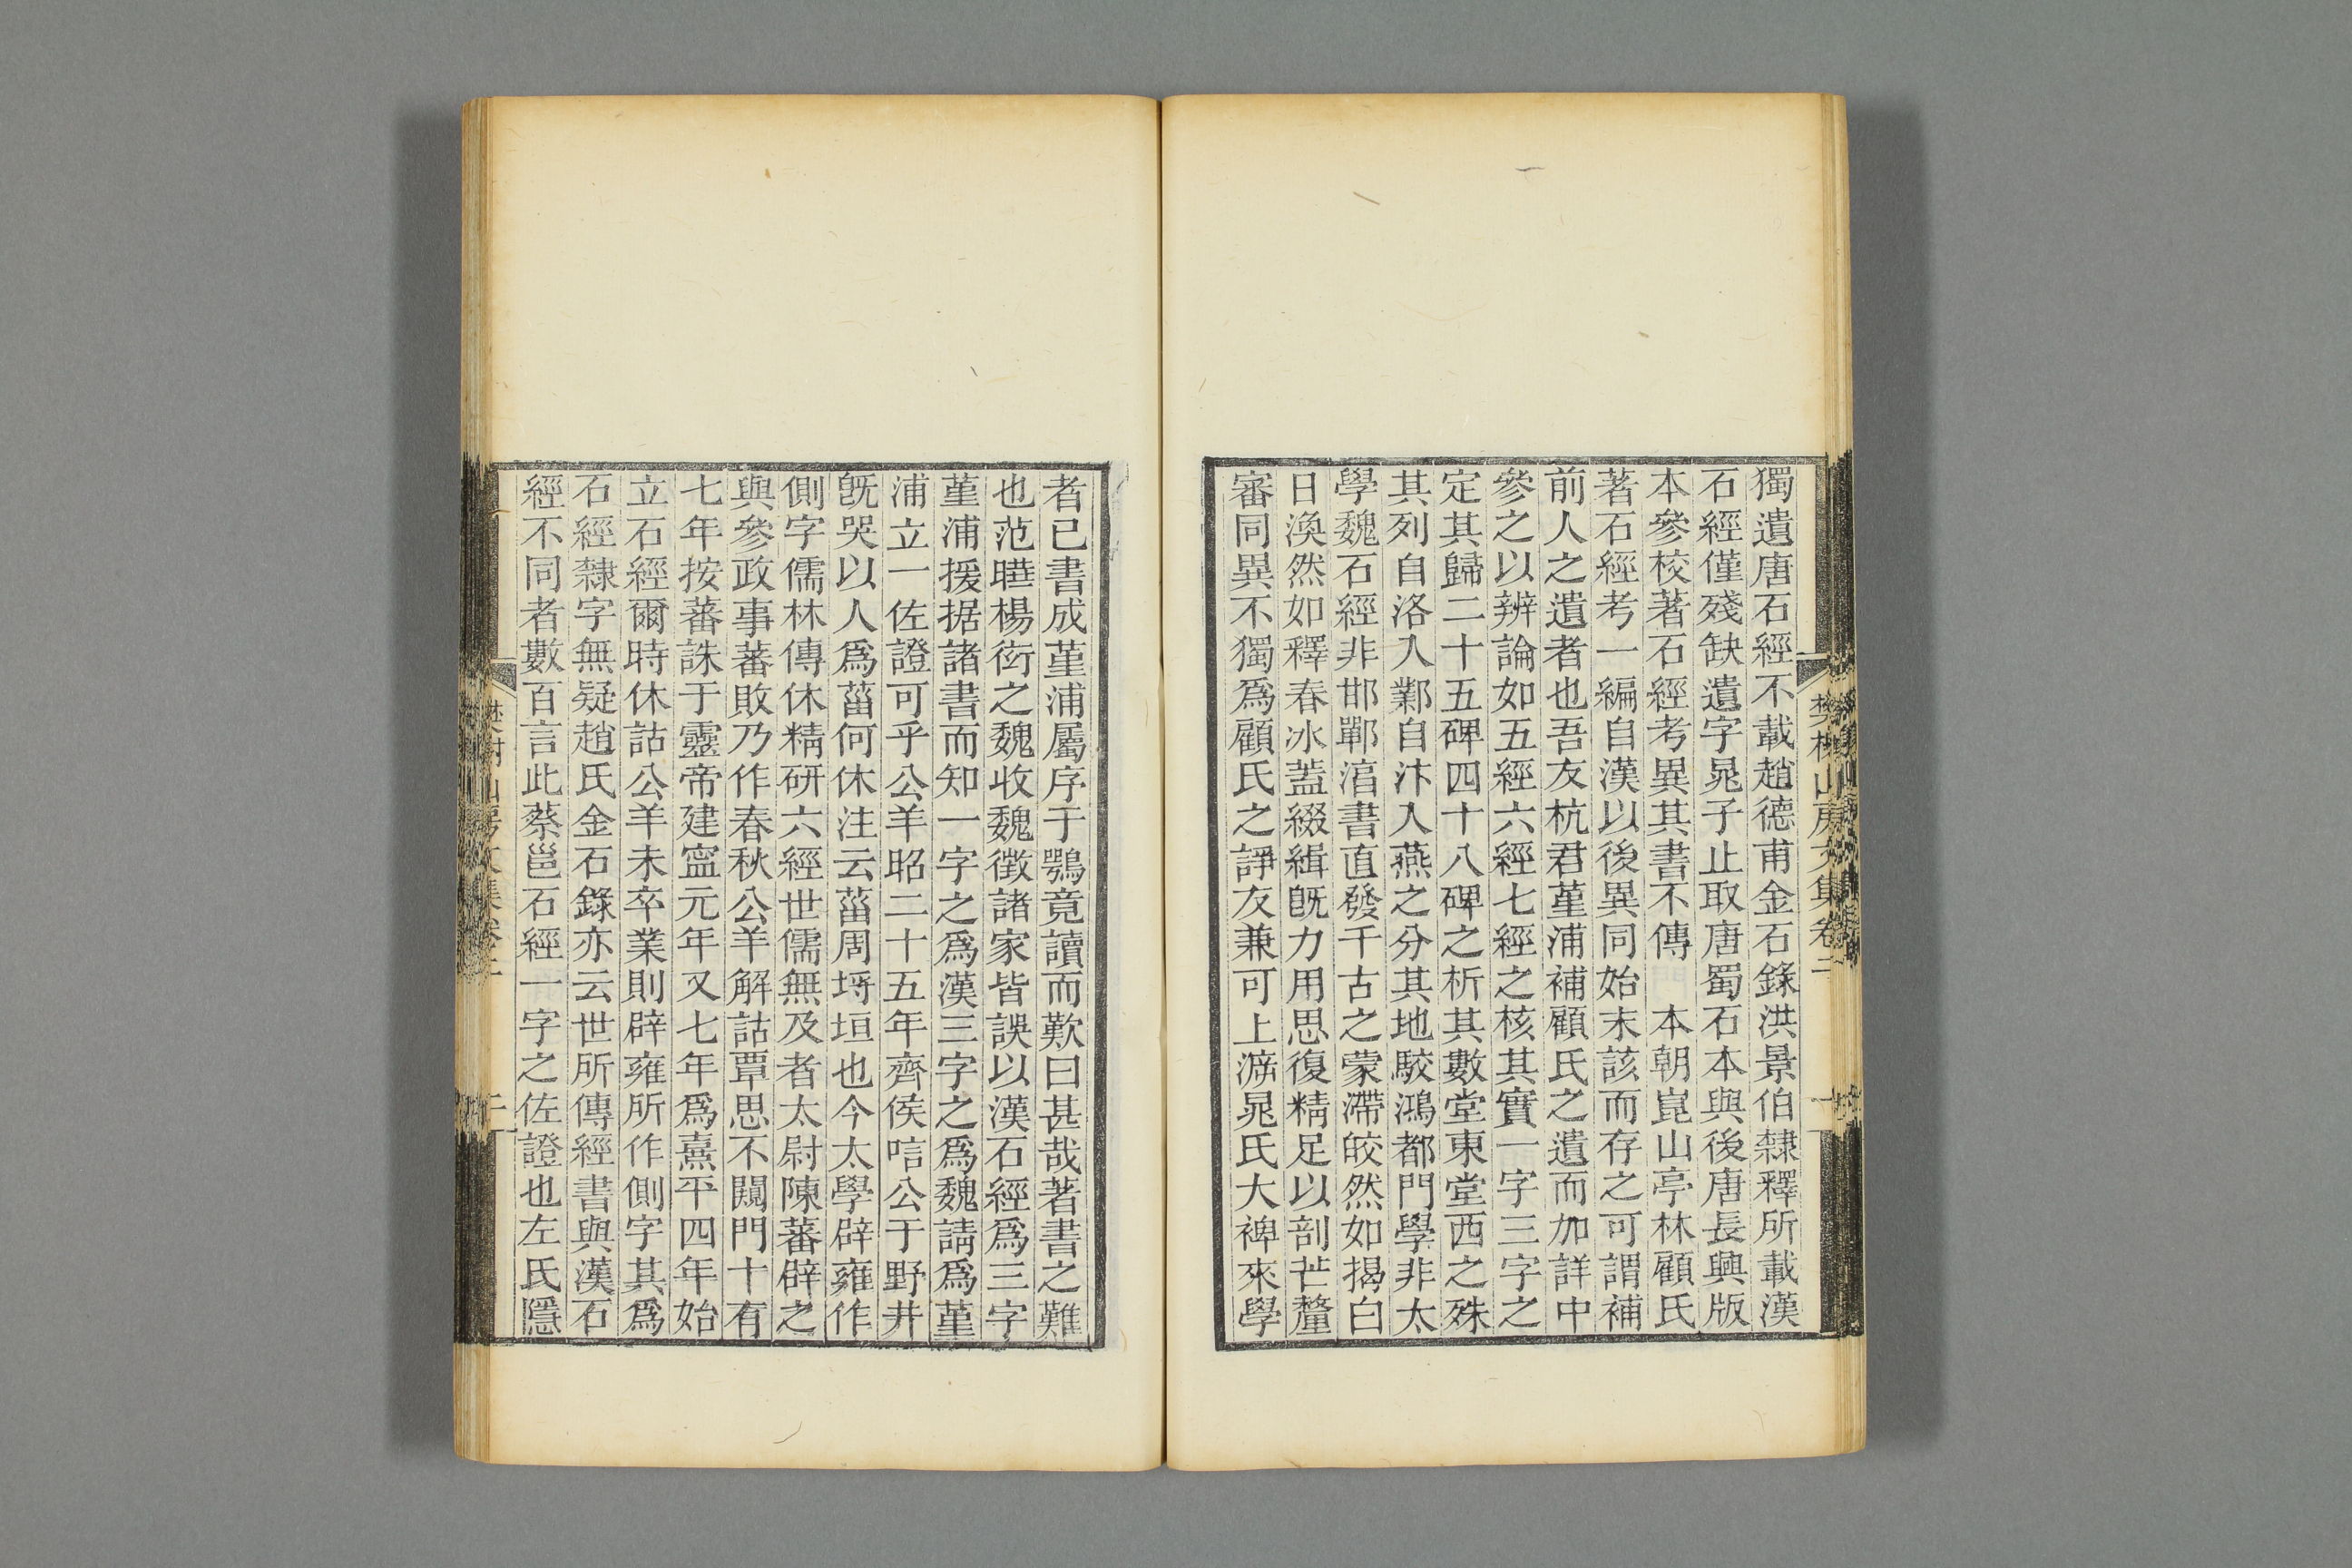 獨遺唐石經不載趙德甫金石錄洪景伯隸釋所載漢
石經僅殘缺遺字晁子止取唐蜀石本與後唐長興版
本參校著石經考異其書不傳 本朝崑山亭林顧氏
著石經考一編自漢以後異同始末該而存之可謂補
前人之遺者也吾友杭君堇浦補顧氏之遺而加詳中
參之以辨論如五經六經七經之核其實一字三字之
定其歸二十五碑四十八碑之析其數堂東堂西之殊
其列自洛入鄴自汴入燕之分其地駮鴻都門學非太
學魏石經非邯鄲湻書直發千古之蒙滯皎然如揭白
日渙然如釋春冰蓋綴緝旣力用思復精足以剖芒釐
審同異不獨爲顧氏之諍友兼可上泝晁氏大裨來學
樊榭山房文集卷二
者已書成堇浦屬序于鶚竟讀而歎曰甚哉著書之難
也范曄楊衒之魏收魏徵諸家皆誤以漢石經爲三字
堇浦援据諸書而知一字之爲漢三字之爲魏請爲堇
浦立一佐證可乎公羊昭二十五年齊侯唁公于野井
旣哭以人爲菑何休注云菑周埒垣也今太學辟雍作
側字儒林傳休精研六經世儒無及者太尉陳蕃辟之
與參政事蕃敗乃作春秋公羊解詁覃思不闚門十有
七年按蕃誅于靈帝建寧元年又七年爲熹平四年始
立石經爾時休詁公羊未卒業則辟雍所作側字其爲
石經隸字無疑趙氏金石錄亦云世所傳經書與漢石
經不同者數百言此蔡邕石經一字之佐證也左氏隱
樊榭山房文集卷二